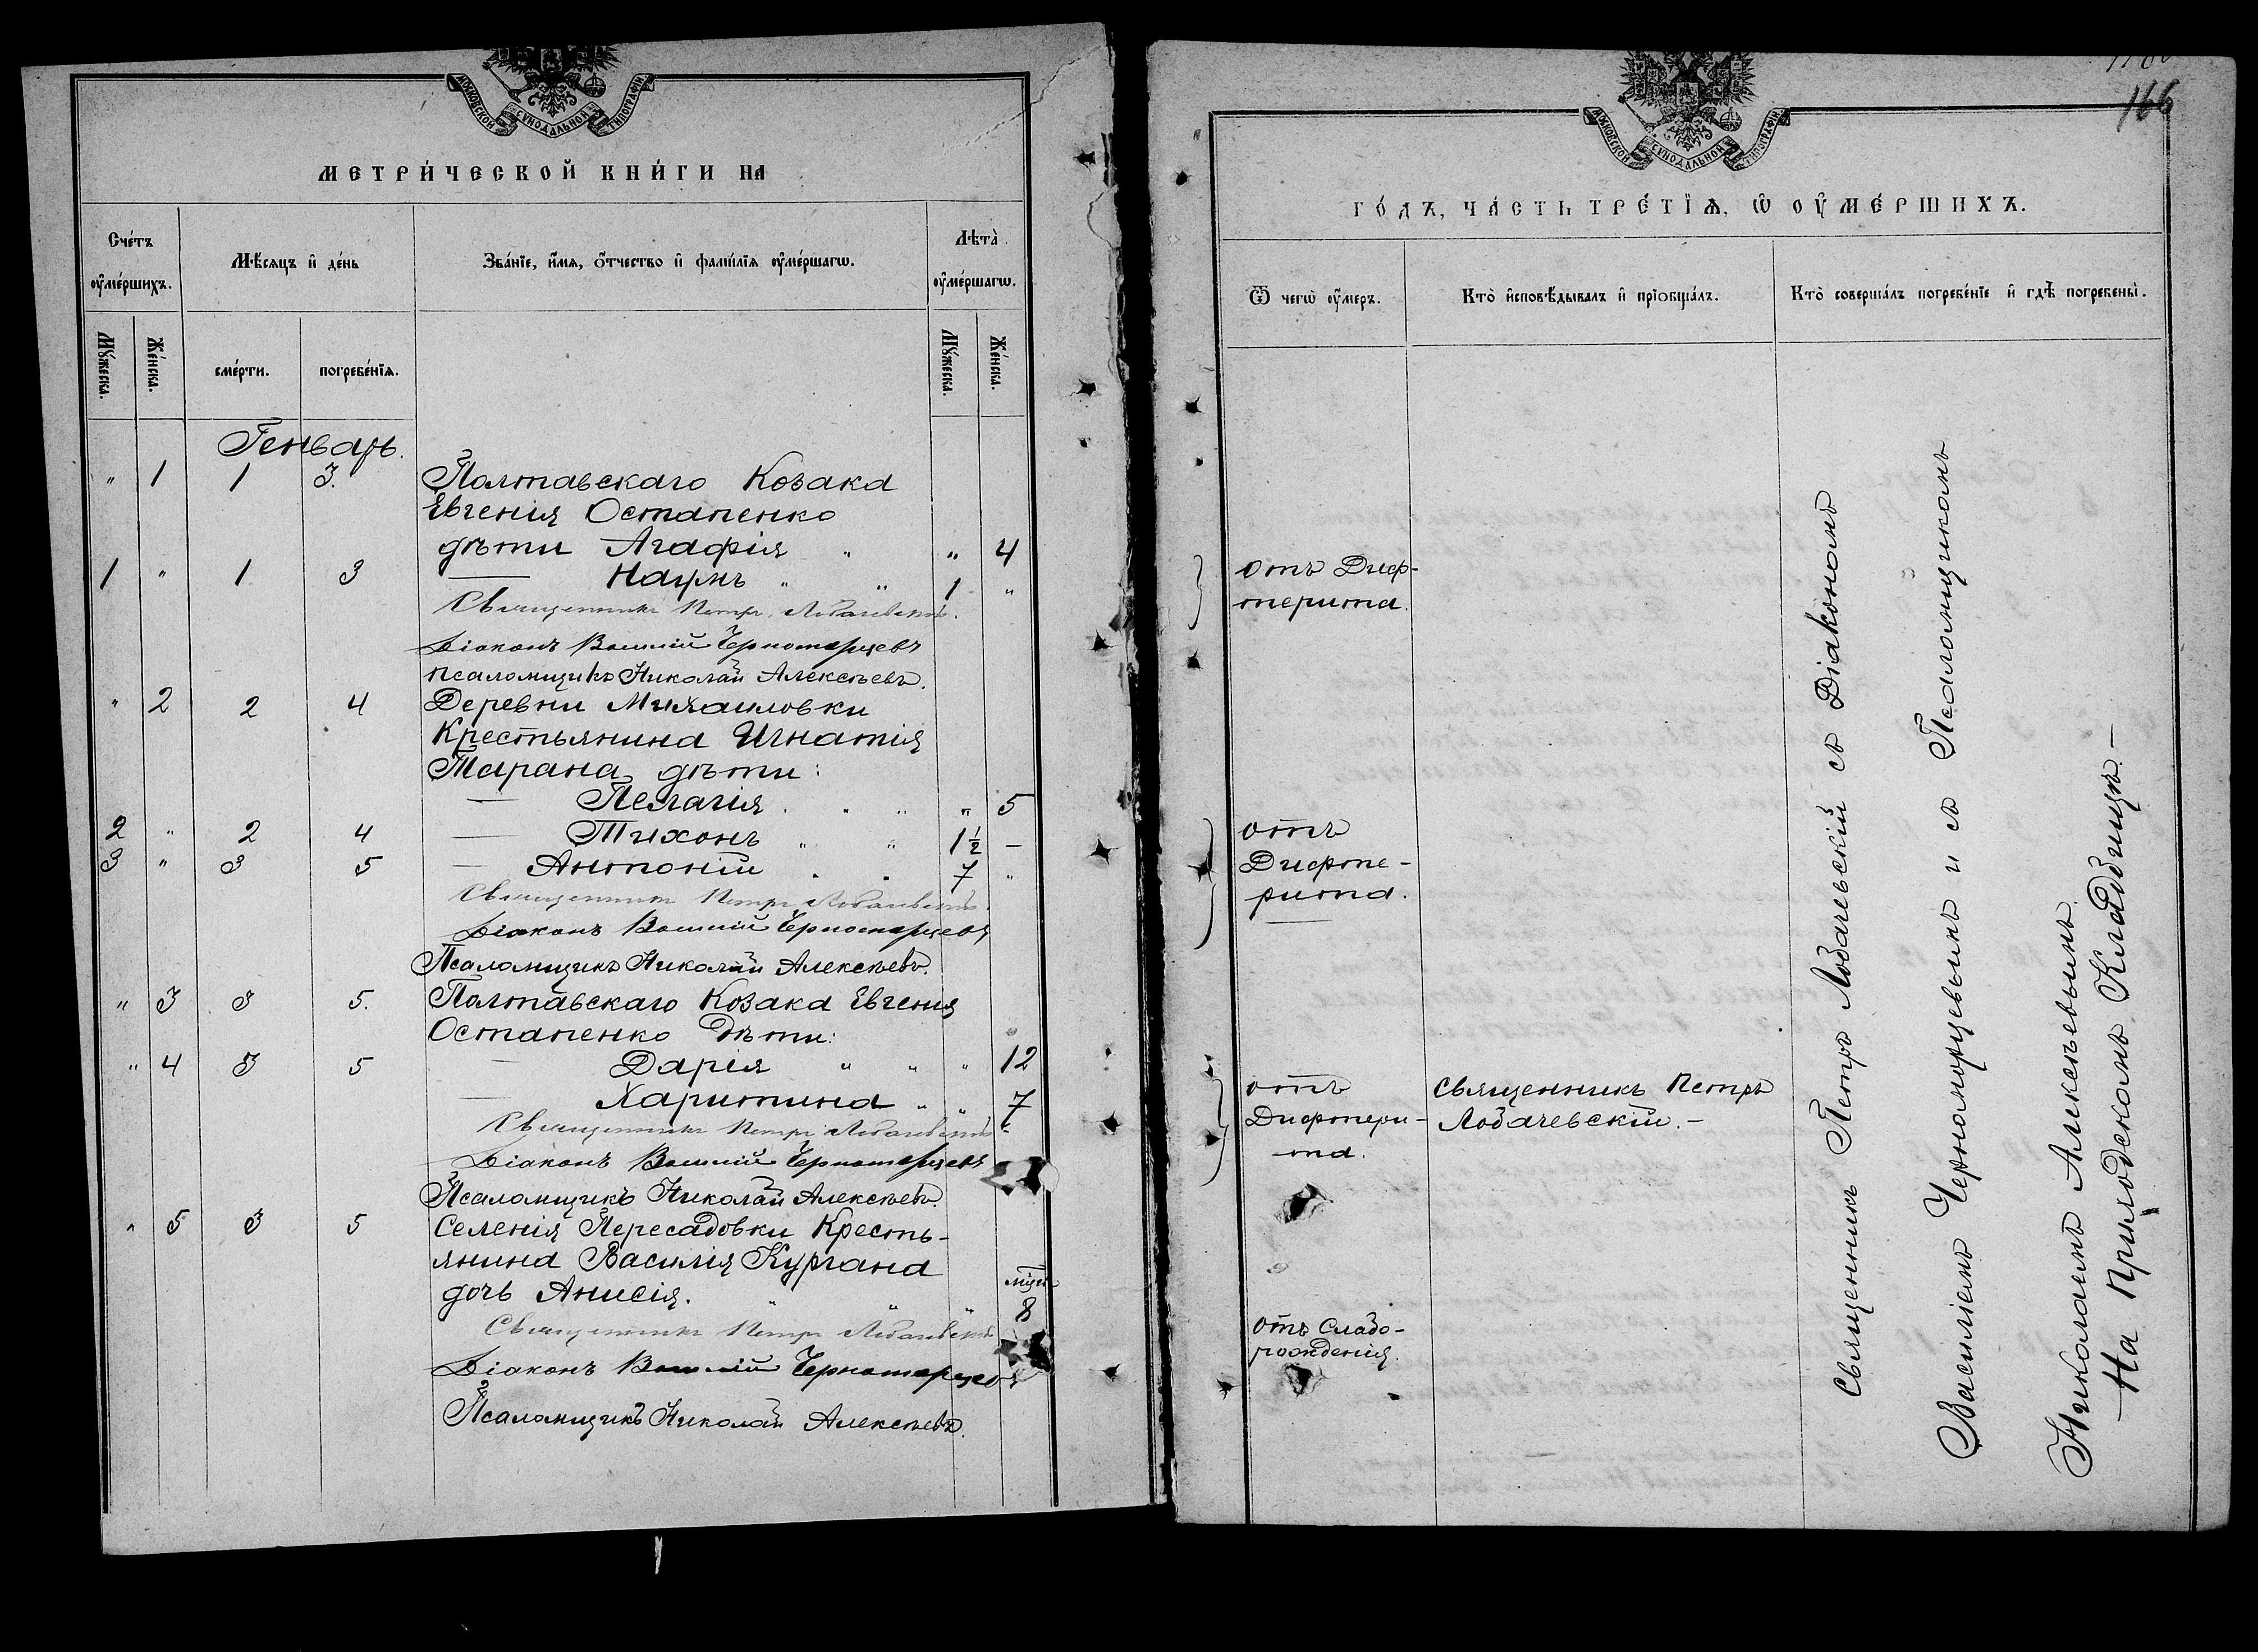 МОСКОВСКОЙ СѴНОДАЛЬНОЙ ТИПОГРАФІИ
МЕТРИ́ЧЕСКОЙ КНИ́ГИ НА
Сче́тъ ᲂу҆ме́ршихъ.
Мѣ́сяцъ и҆ де́нь
Зва́нїе, и҆́мѧ, ѻ҆́тчество и҆ фами́лїѧ ᲂу҆ме́ршагѡ.
Лѣта̀ ᲂу҆ме́ршагѡ.
Мꙋ́жеска.
Же́нска.
сме́рти.
погребе́нїѧ.
Мꙋ́жеска.
Же́нска.
Генварь.
" 1 1 3. Полтавскаго Козака
Евгенія Остапенко
дѣти Агафія " " 4
1 " 1 3 — Наумъ " " 1 "
Священникъ Петръ Лобачевскій.
Діаконъ Василій Черноморцевъ
Псаломщикъ Николай Алексѣевъ.
" 2 2 4 Деревни Михаиловки
Крестьянина Игнатія
Тарана дѣти:
— Пелагія . " " " 5
2 " 2 4 — Тихонъ " " 1½ —
3 " 3 5 — Антоній . . 7 "
Священникъ Петръ Лобачевскій.
Діаконъ Василій Черноморцевъ
Псаломщикъ Николай Алексѣевъ.
" 3 3 5. Полтавскаго Козака Евгенія
Остапенко Дѣти:
" 4 3 5 — Дарія " " " 12
— Харитина " " 7
Священникъ Петръ Лобачевскій
Діаконъ Василій Черноморцевъ
Псаломщикъ Николай Алексѣевъ.
" 5 3 5 Селенія Пересадовки Кресть-
янина Василія Кургана
дочь Анисія. " " " 8
Священникъ Петръ Лобачевскій
Діаконъ Василій Черноморцевъ
Псаломщикъ Николай Алексѣевъ.
166
МОСКОВСКОЙ СѴНОДАЛЬНОЙ ТИПОГРАФІИ
ГО́ДЪ, ЧА́СТЬ ТРЕ́ТЇѦ, Ѡ҆ ОУ҆МЕ́РШИХЪ.
Ѿ чегѡ̀ ᲂу҆́меръ.
Кто̀ и҆сповѣ́дывалъ и҆ прїобща́лъ.
Кто̀ соверша́лъ погребе́нїе и҆ гдѣ̀ погребены̀.
отъ Диф-
терита.
отъ
Дифте-
рита.
отъ
Дифтери-
та.
Священникъ Петръ
Лобачевскій.—
отъ Слабо-
рожденія.
Священникъ Петръ Лобачевскій съ Діакономъ
Василіемъ Черноморцевымъ и съ Псаломщикомъ
Николаемъ Алексѣевымъ.
— На Приходскомъ Кладбищѣ.—